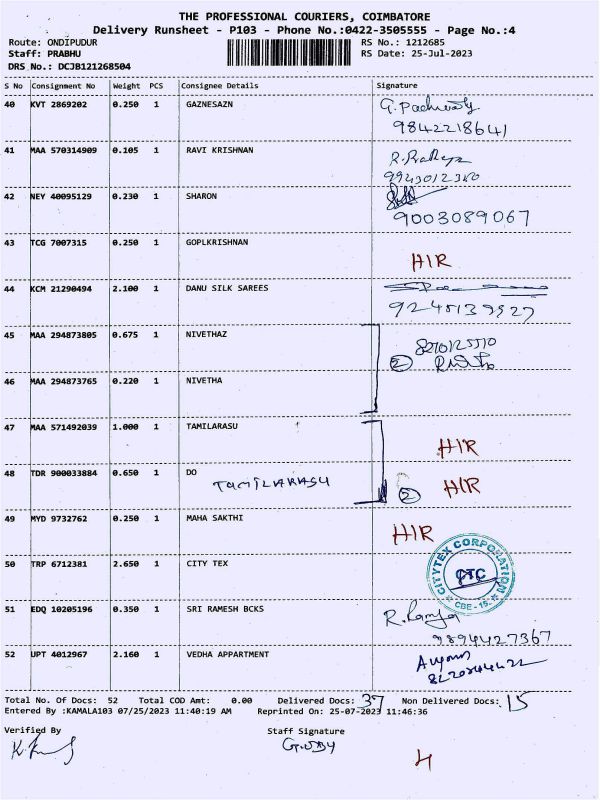 THE PROFESSIONAL COURIERS, COIMBATORE
Delivery Runsheet - P103 - Phone No.:0422-3505555 - Page No.:4
Route: ONDIPUDUR RS No.: 1212685
Staff: PRABHU RS Date: 25-Jul-2023
DRS No.: DCJB121268504
S No Consignment No Weight PCS Consignee Details Signature
40 KVT 2869202 0.250 1 GAZNESAZN
9842218641
41 MAA 570314909 0.105 1 RAVI KRISHNAN
42 NEY 40095129 0.230 1 SHARON
9003089067
43 TCG 7007315 0.250 1 GOPLKRISHNAN
HIR
44 KCM 21290494 2.100 1 DANU SILK SAREES
45 MAA 294873805 0.675 1 NIVETHAZ
2
46 MAA 294873765 0.220 1 NIVETHA
47 MAA 571492039 1.000 1 TAMILARASU
HIR
48 TDR 900033884 0.650 1 DO
TAMILARASU 2 HIR
49 MYD 9732762 0.250 1 MAHA SAKTHI
HIR
50 TRP 6712381 2.650 1 CITY TEX
CITYTEX CORPORATION
CTC
CBE - 15.
51 EDQ 10205196 0.350 1 SRI RAMESH BCKS
R. Ramya
9894427367
52 UPT 4012967 2.160 1 VEDHA APPARTMENT
Total No. Of Docs: 52 Total COD Amt: 0.00 Delivered Docs: 37 Non Delivered Docs: 15
Entered By :KAMALA103 07/25/2023 11:40:19 AM Reprinted On: 25-07-2023 11:46:36
Verified By Staff Signature
4